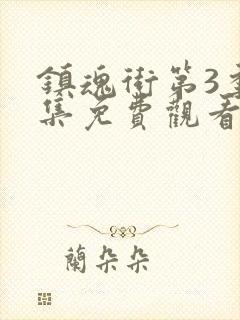 鎮魂街第3季
集免費觀看
蘭朵朵